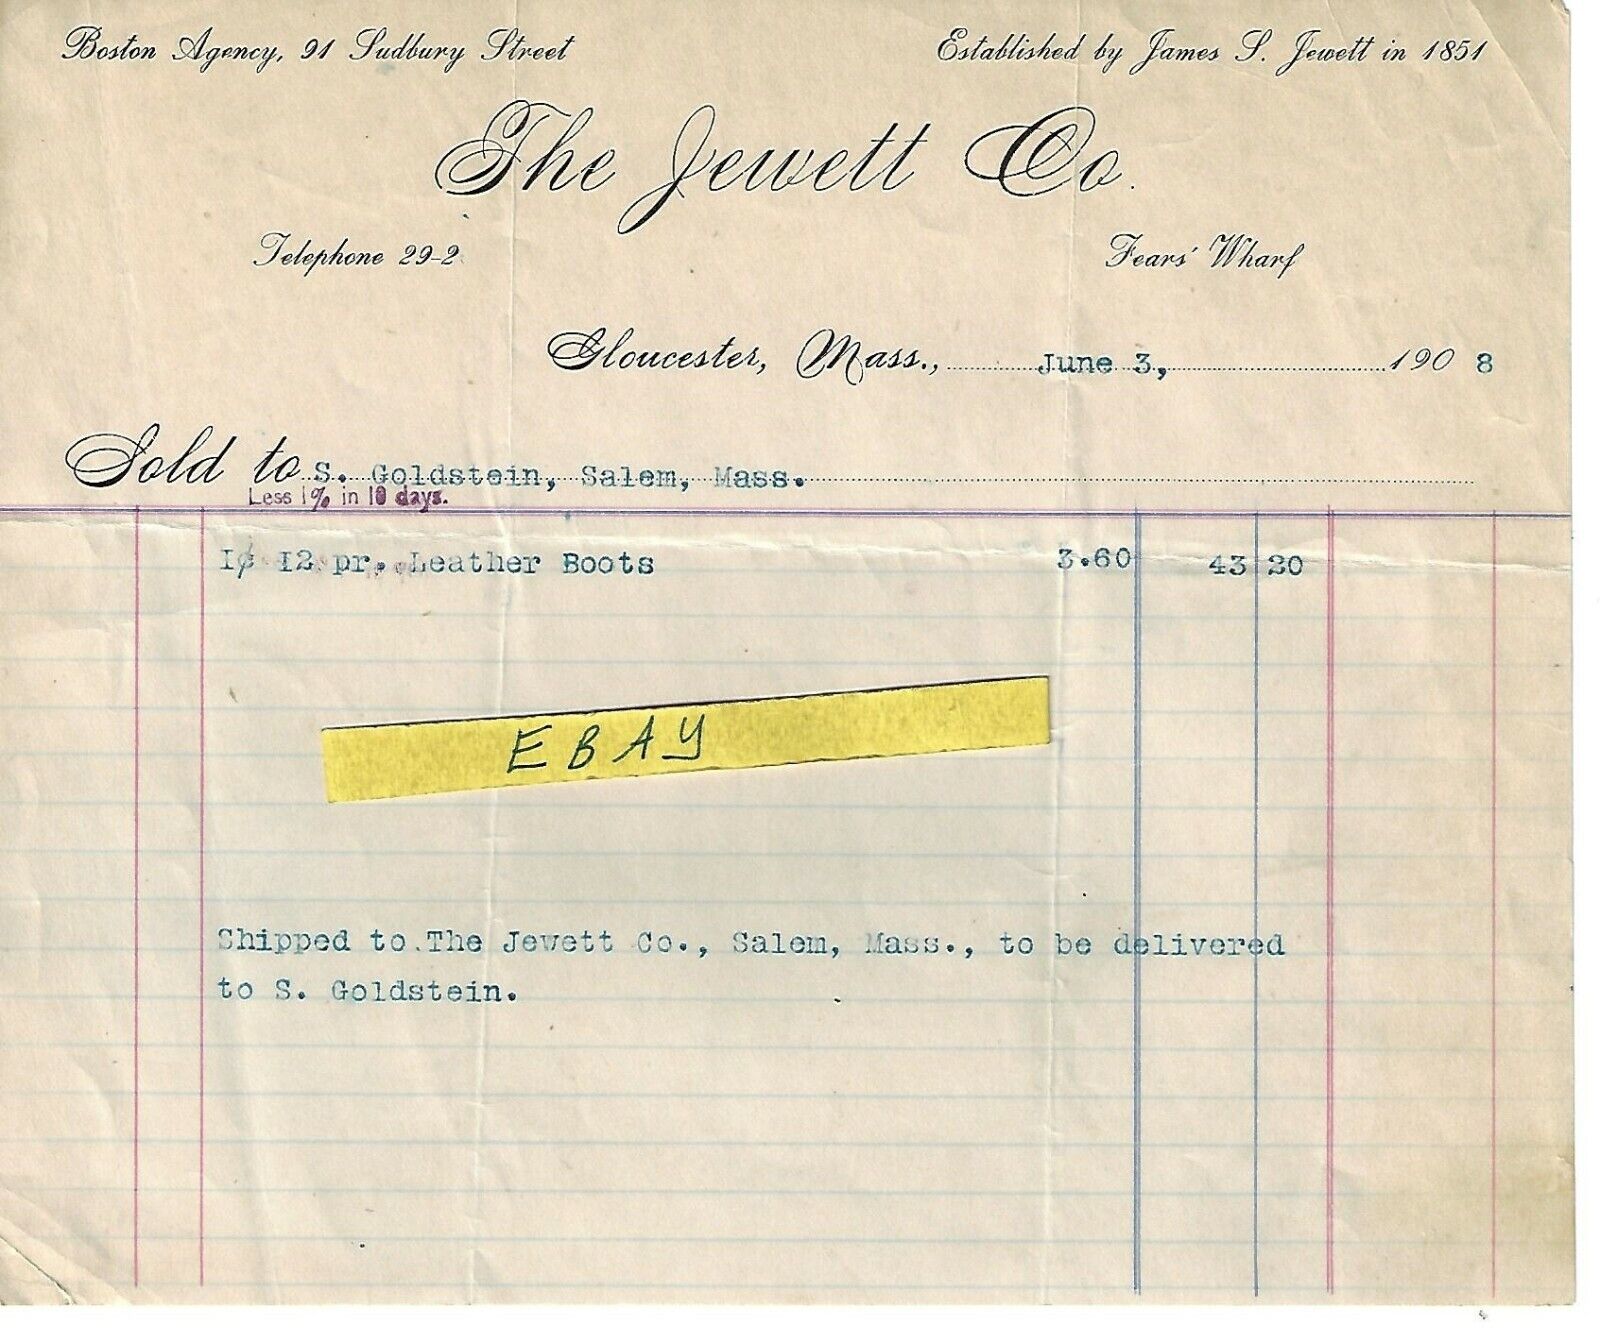 Boston Agency, 91 Sudbury Street
Established by James S. Jewett in 1851
The Jewett Co.
Telephone 29-2
Fears' Wharf
Gloucester, Mass., June 3, 190 8
Sold to S. Goldstein, Salem, Mass.
Less 1% in 10 days.
12 pr. Leather Boots 3.60 43 20
EBAY
Shipped to The Jewett Co., Salem, Mass., to be delivered
to S. Goldstein.